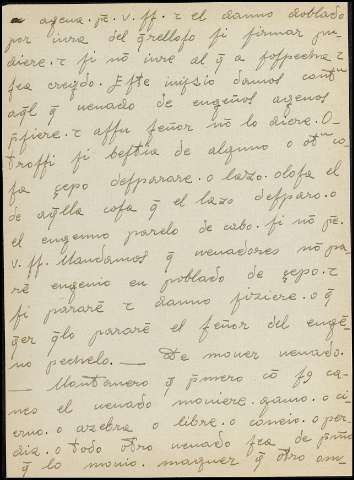 agena. pē. v. ff. τ el danno doblado
por iura del q̄rellofo fi firmar pu-
diere. τ fi nō iure al q̄ a fofpecha τ
fea creydo. Efte iuyzio damos contra
aq̄l q̄ uenado de engeños agenos
p̄fiere. τ affu feñor nō lo diere. O-
troffi fi beftia de alguno o otra co-
fa çepo defparare. o lazo. o lofa el
de aq̄lla cofa q̄ el lazo defparo. o
el engenno parelo de cabo. fi nō pē.
v. ff. Mandamos q̄ uenadores nō pa-
rē engenio en poblado de çepo. τ
fi pararē τ danno fiziere. o q̄
q̄er q̄lo pararē el feñor del engē-
no pechelo. — De mouer uenado.
— Montānero q̄ p̄mero cō fos ca-
nes el uenado mouiere. gamo. o ci-
eruo. o azebra. o libre. o coneio. o per-
diz. o todo otro uenado fea de p̄mo
q̄ lo mouio. maguer q̄ otro om-